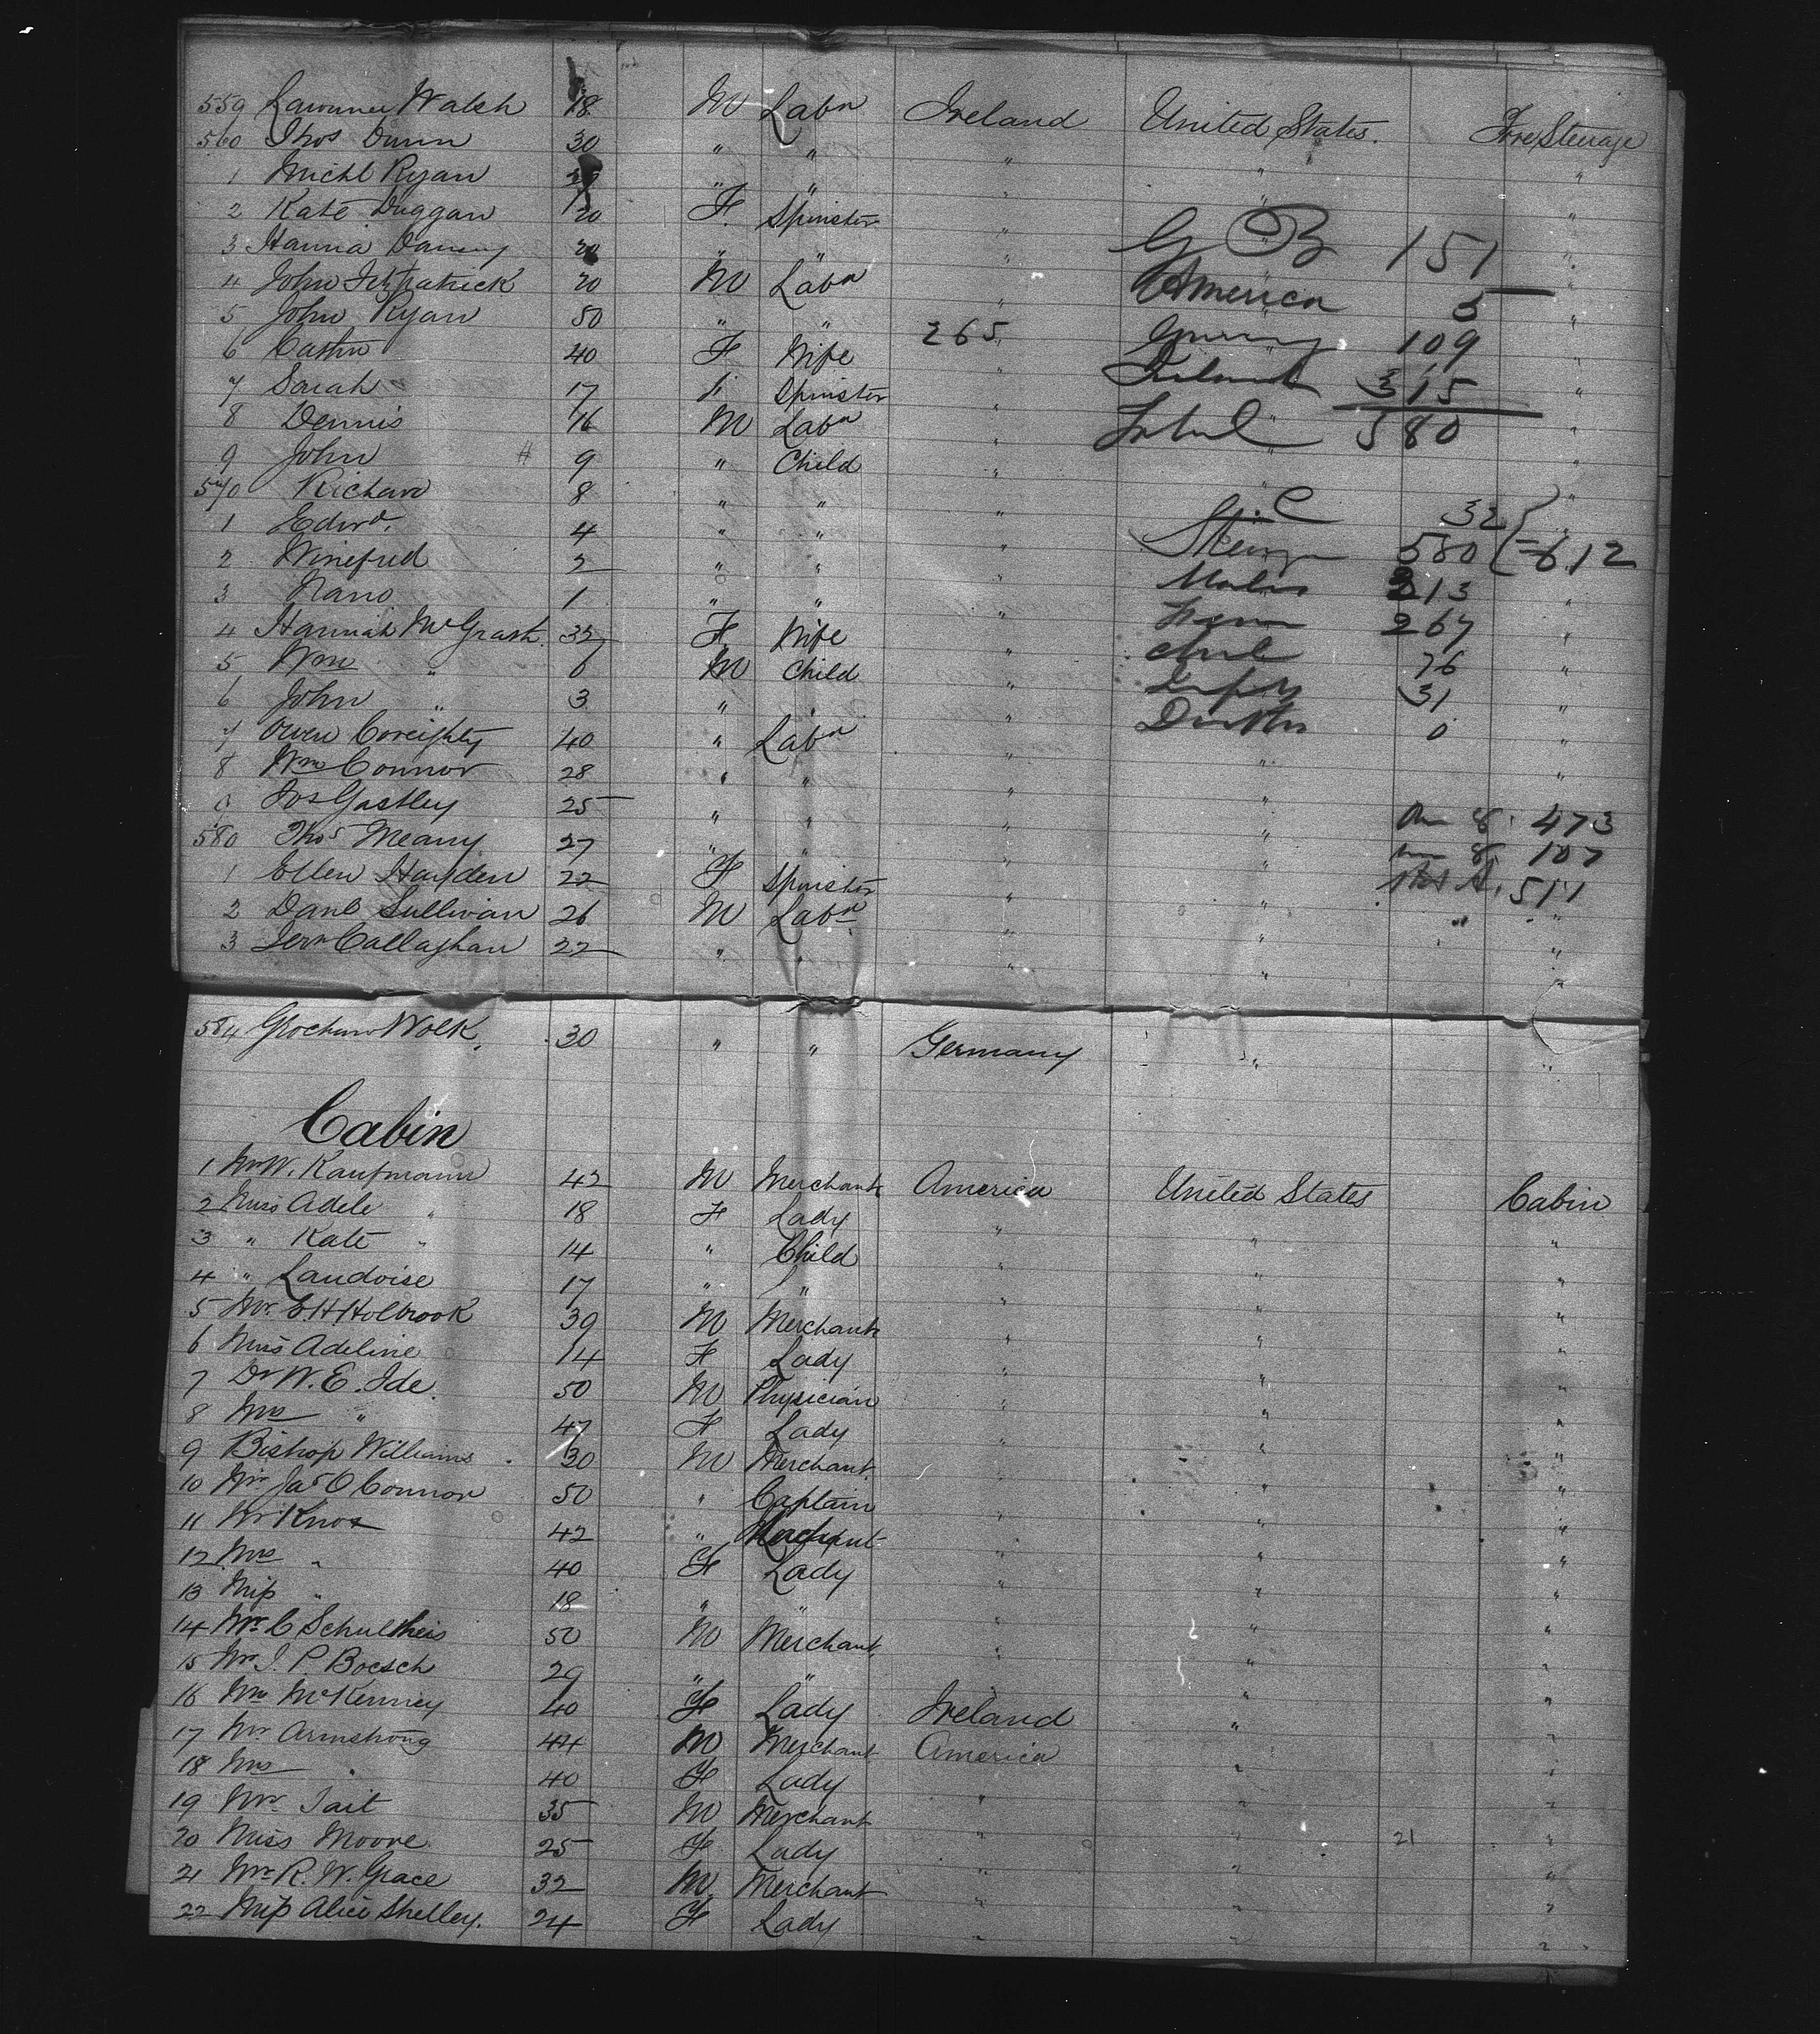 559 Lawrence Walsh 18 M Labr Ireland United States. Fore Steerage
560 Thos Dunn 30 " " " " "
1 Michl Ryan " " " " "
2 Kate Duggan 20 F Spinster " "
3 Hanna 20 " " " " "
G B 151
4 John Fitzpatrick 20 M Labr " " "
America 5
5 John Ryan 50 " " " "
265 Germany 109
6 Cathn 40 F Wife " " "
Ireland 315
7 Sarah 17 " Spinster " "
Total 580
8 Dennis 16 M Labr " " "
9 John # 9 " Child " " "
570 Richard 8 " " " " "
1 Edwd. 4 " " " "
C 32
2 Winefred 2 " " "
580 = 612
3 Nano 1 " " "
Males 213
4 Hannah McGrath 32 F Wife " "
267
5 Wm " 6 M Child " "
76
6 John " 3 " " " "
31
7 Owen 40 " Labr " "
Deaths 0
8 Wm Connor 28 " " " " "
9 Jos Gastley 25 " " " "
8. 473
580 Thos Meany 27 " " " "
8. 107
1 Ellen Hayden 22 F Spinster " "
2 Danl Sullivan 26 M Labr " " "
3 Jerh Callaghan 22 " " " " "
584 Wolk, 30 " " Germany " "
Cabin
1 Mr W. Kaufmann 42 M Merchant America United States Cabin
2 Miss Adele " 18 F Lady " " "
3 " Kate " 14 " Child " " "
4 " Landoise 17 " " " " "
5 Mr. E. H. Holbrook 39 M Merchant " " "
6 Miss Adeline 14 F Lady " " "
7 Dr W. E. Ide. 50 M Physician " " "
8 Mrs " 47 F Lady " " "
9 Bishop Williams 30 M Merchant " " "
10 Mr. Jas O Connor 50 " Captain " " "
11 Mr Knox 42 " Merchant " " "
12 Mrs " 40 F Lady " " "
13 Miss " 18 " " " " "
14 Mr. C Schultheis 50 M Merchant " " "
15 Mr. J. P. Boesch 29 " " " " "
16 Mrs McKenney 40 F Lady Ireland " "
17 Mr. Armstrong 44 M Merchant America " "
18 Mrs " 40 F Lady " " "
19 Mr. Tait 35 M Merchant " " "
20 Miss Moore 25 F Lady " 21 "
21 Mr. R. W. Grace 32 M Merchant " " "
22 Miss Alice Shelley. 24 F Lady " " "